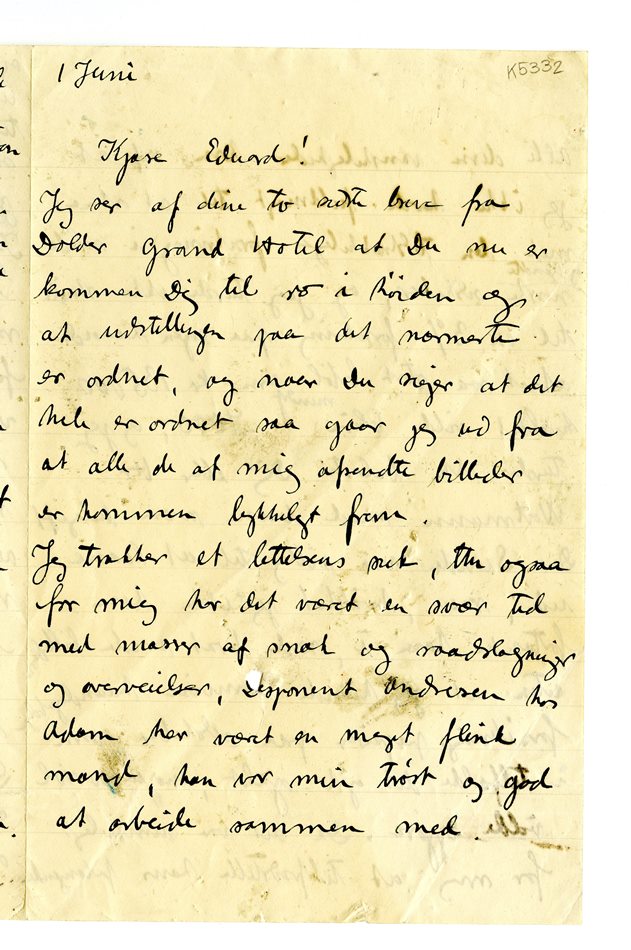 K5332
1 Juni
Kjære Eduard!
Jeg ser af dine to sidste breve fra
Dolder Grand Hotel at Du nu er
kommen Dig til ro i höiden og
at udstillingen paa det nærmeste
er ordnet, og naar Du siger at det
hele er ordnet saa gaar jeg ud fra
at alle de af mig afsendte billeder
er kommen lykkeligt frem.
Jeg trækker et lettelsens suk, thi ogsaa
for mig har det været en svær tid
med masser af snak og raadslagninger
og overveielser, Disponent Andresen hos
Adam har været en meget flink
mand, han var min tröst og god
at arbeide sammen med.